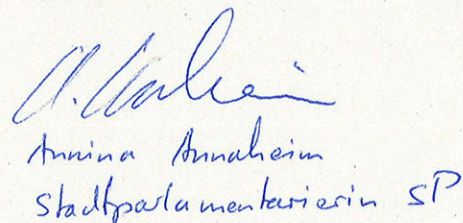 A. Annaheim
Annina Annaheim
Stadtparlamentarierin SP